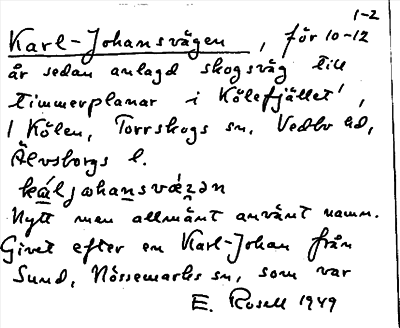 1-2
Karl-Johansvägen, för 10-12
år sedan anlagd skogsväg till
timmerplanar i Kölefjället',
1 Kölen, Torrskogs sn, Vedbo hd,
Älvsborgs l.
káljohansvǽgən
Nytt men allmänt använt namn.
Givet efter en Karl-Johan från
Sund, Nössemarks sn, som var
E. Rosell 1949